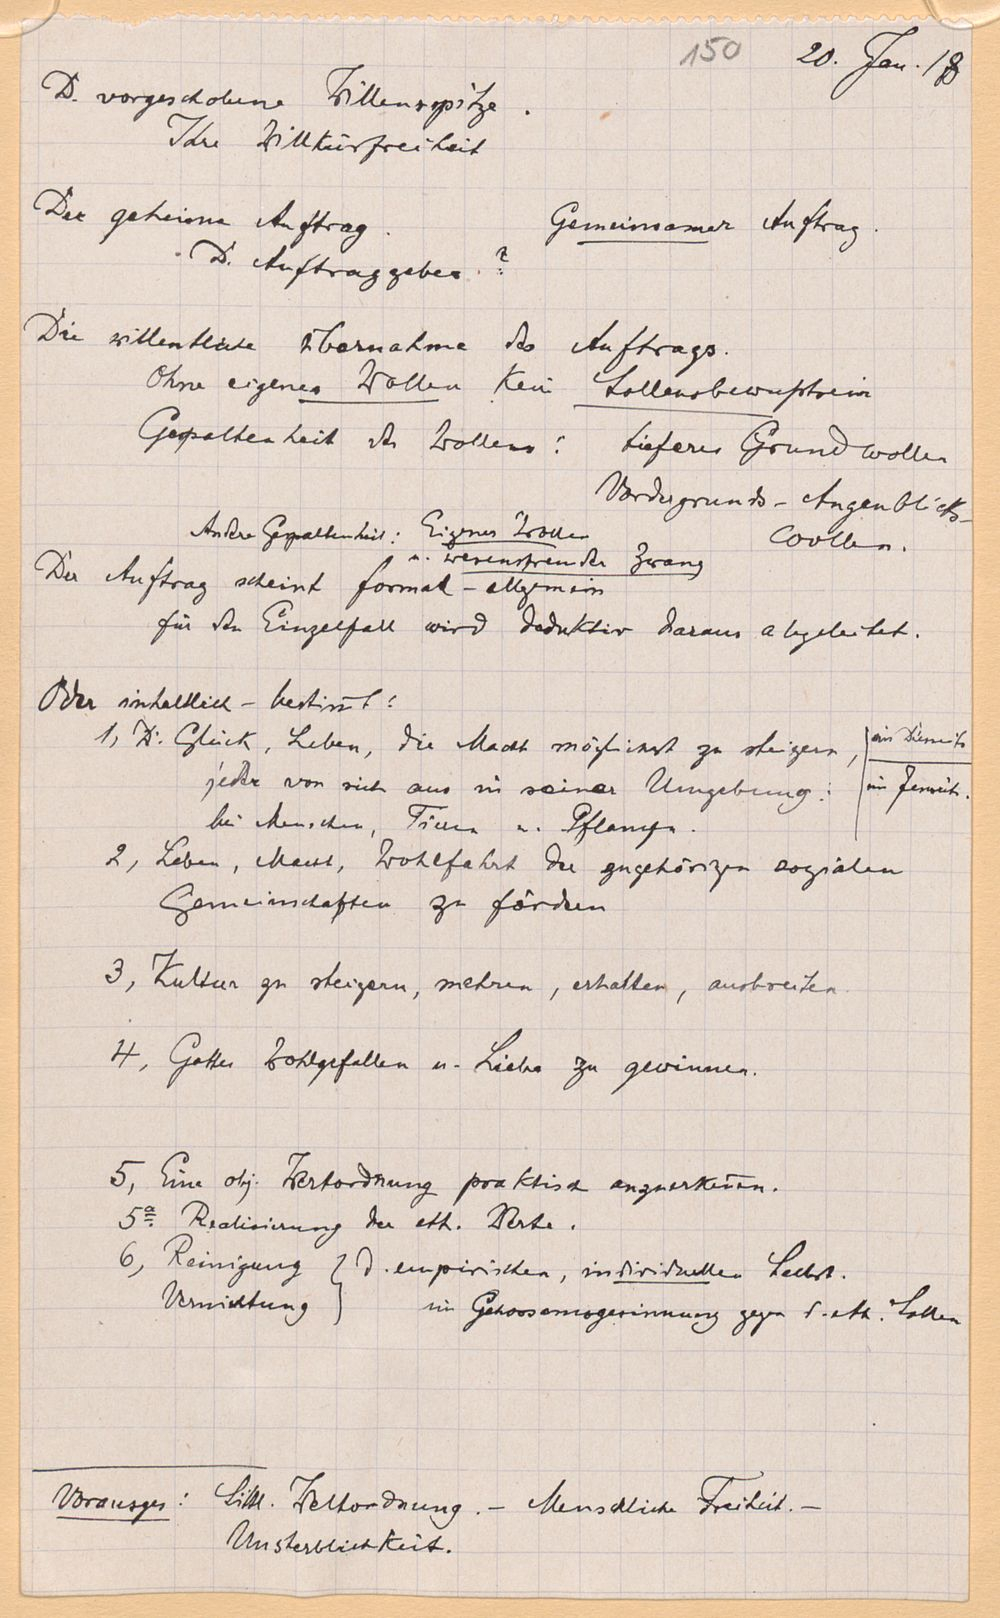 150 20. Jan. 18
D. vorgeschobene Willensspitze.
Ihre Willkürfreiheit
Der geheime Auftrag. Gemeinsamer Auftrag.
D. Auftraggeber?
Die willentliche Übernahme des Auftrags.
Ohne eigenes Wollen kein Sollensbewußtsein
Gespaltenheit des Wollens: tieferes Grundwollen
Vordergrunds-Augenblicks-
wollen.
Andere Gespaltenheit: Eigenes Wollen
u. wesensfremder Zwang
Der Auftrag scheint formal-allgemein
für den Einzelfall wird deduktiv daraus abgeleitet.
Oder inhaltlich-bestimt:
1, D. Glück, Leben, die Macht möglichst zu steigern, im Diesseits
jeder von sich aus in seiner Umgebung: im Jenseits.
bei Menschen, Tieren u. Pflanzen.
2, Leben, Macht, Wohlfahrt der zugehörigen sozialen
Gemeinschaften zu fördern
3, Kultur zu steigern, mehren, erhalten, ausbreiten.
4, Gottes Wohlgefallen u. Liebe zu gewinnen.
5, Eine obj. Wertordnung praktisch anzuerkenen.
5a Realisierung der eth. Werte.
6, Reinigung } d. empirischen, individuellen Selbst.
Vernichtung im Gehorsamsgesinnung gegen d. eth. Sollen
Vorausges: Sittl. Weltordnung. – Menschliche Freiheit. –
Unsterblichkeit.